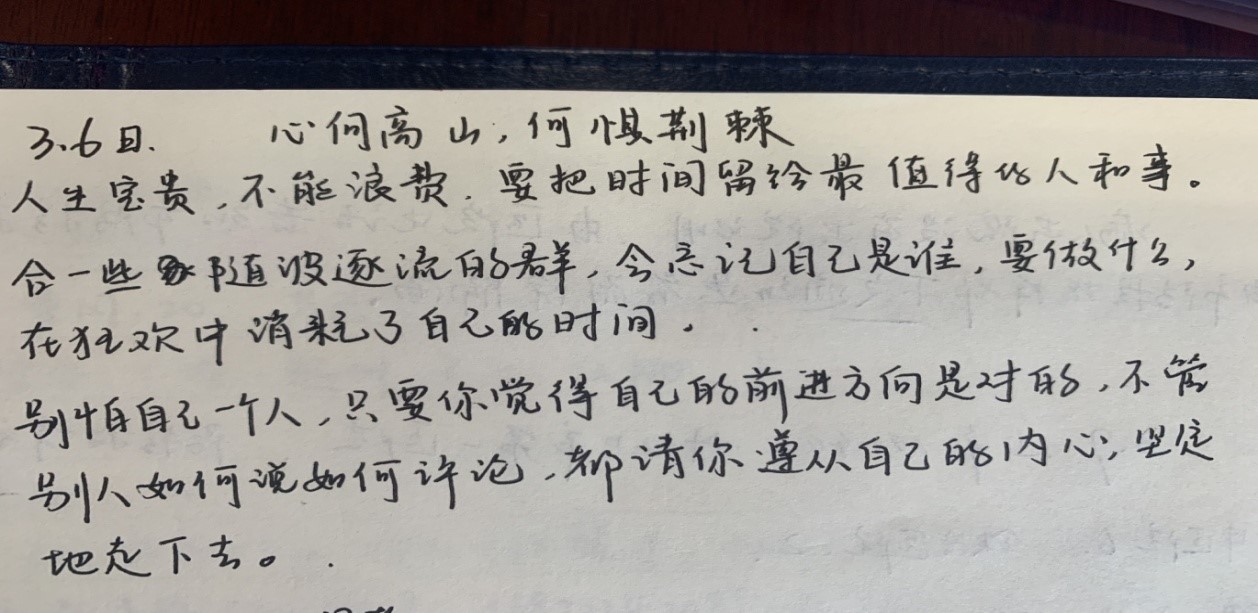 3.6日. 心向高山,何惧荆棘
人生宝贵,不能浪费.要把时间留给最值得的人和事。
合一些随波逐流的群,会忘记自己是谁,要做什么,
在狂欢中消耗了自己的时间.
别怕自己一个人,只要你觉得自己的前进方向是对的,不管
别人如何说如何评论,都请你遵从自己的内心,坚定
地走下去。